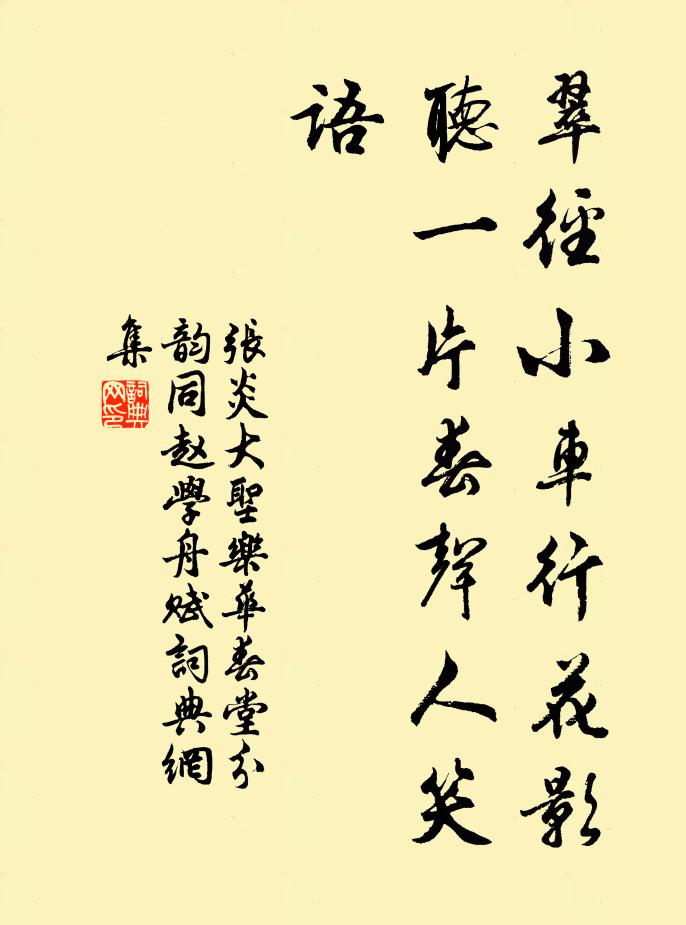 翠徑小車行花影
聽一片春聲人笑
語
張炎大聖樂華春堂分
韵同赵學舟赋詞典網
集
詞典
网印